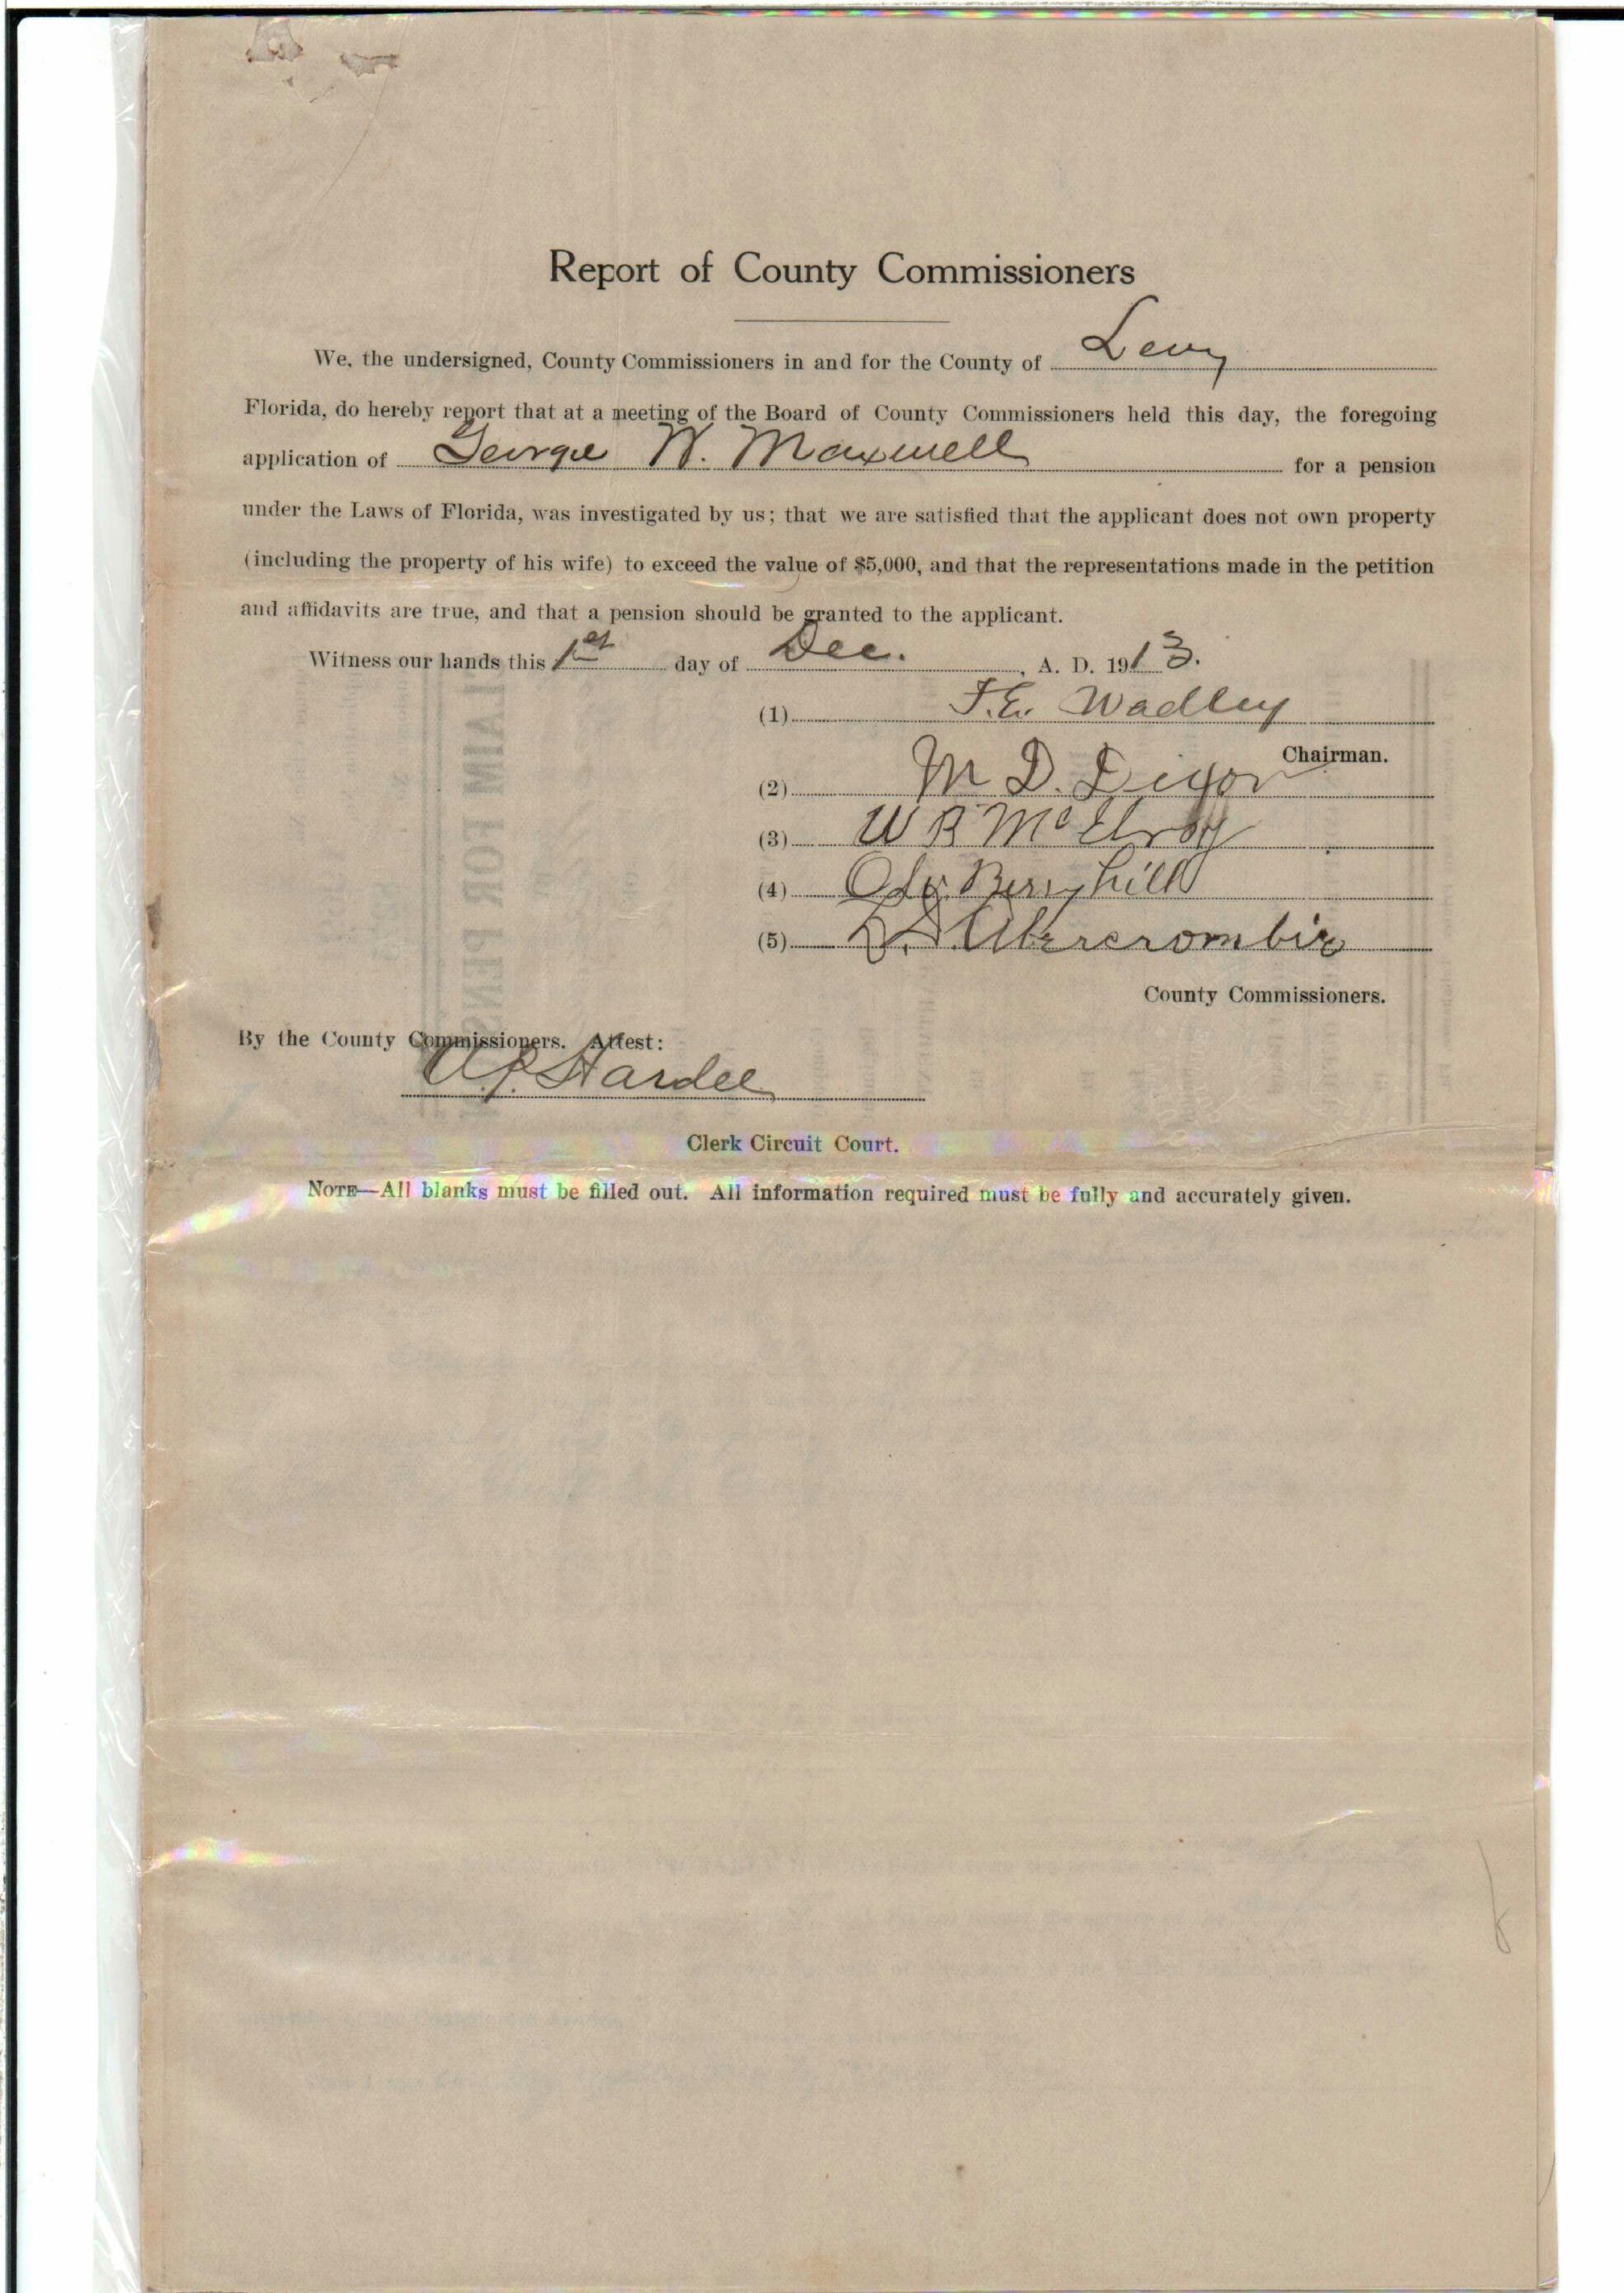 Report of County Commissioners
We, the undersigned, County Commissioners in and for the County of Levy
Florida, do hereby report that at a meeting of the Board of County Commissioners held this day, the foregoing
application of George W. Maxwell for a pension
under the Laws of Florida, was investigated by us; that we are satisfied that the applicant does not own property
(including the property of his wife) to exceed the value of $5,000, and that the representations made in the petition
and affidavits are true, and that a pension should be granted to the applicant.
Witness our hands this 1st day of Dec. , A. D. 1913.
(1) T.E. Wadley
Chairman.
(2) M D. Dixon
(3) W R McElroy
(4) Berryhill
(5) Abercrombie
County Commissioners.
By the County Commissioners. Attest:
Hardee
Clerk Circuit Court.
NOTE—All blanks must be filled out. All information required must be fully and accurately given.